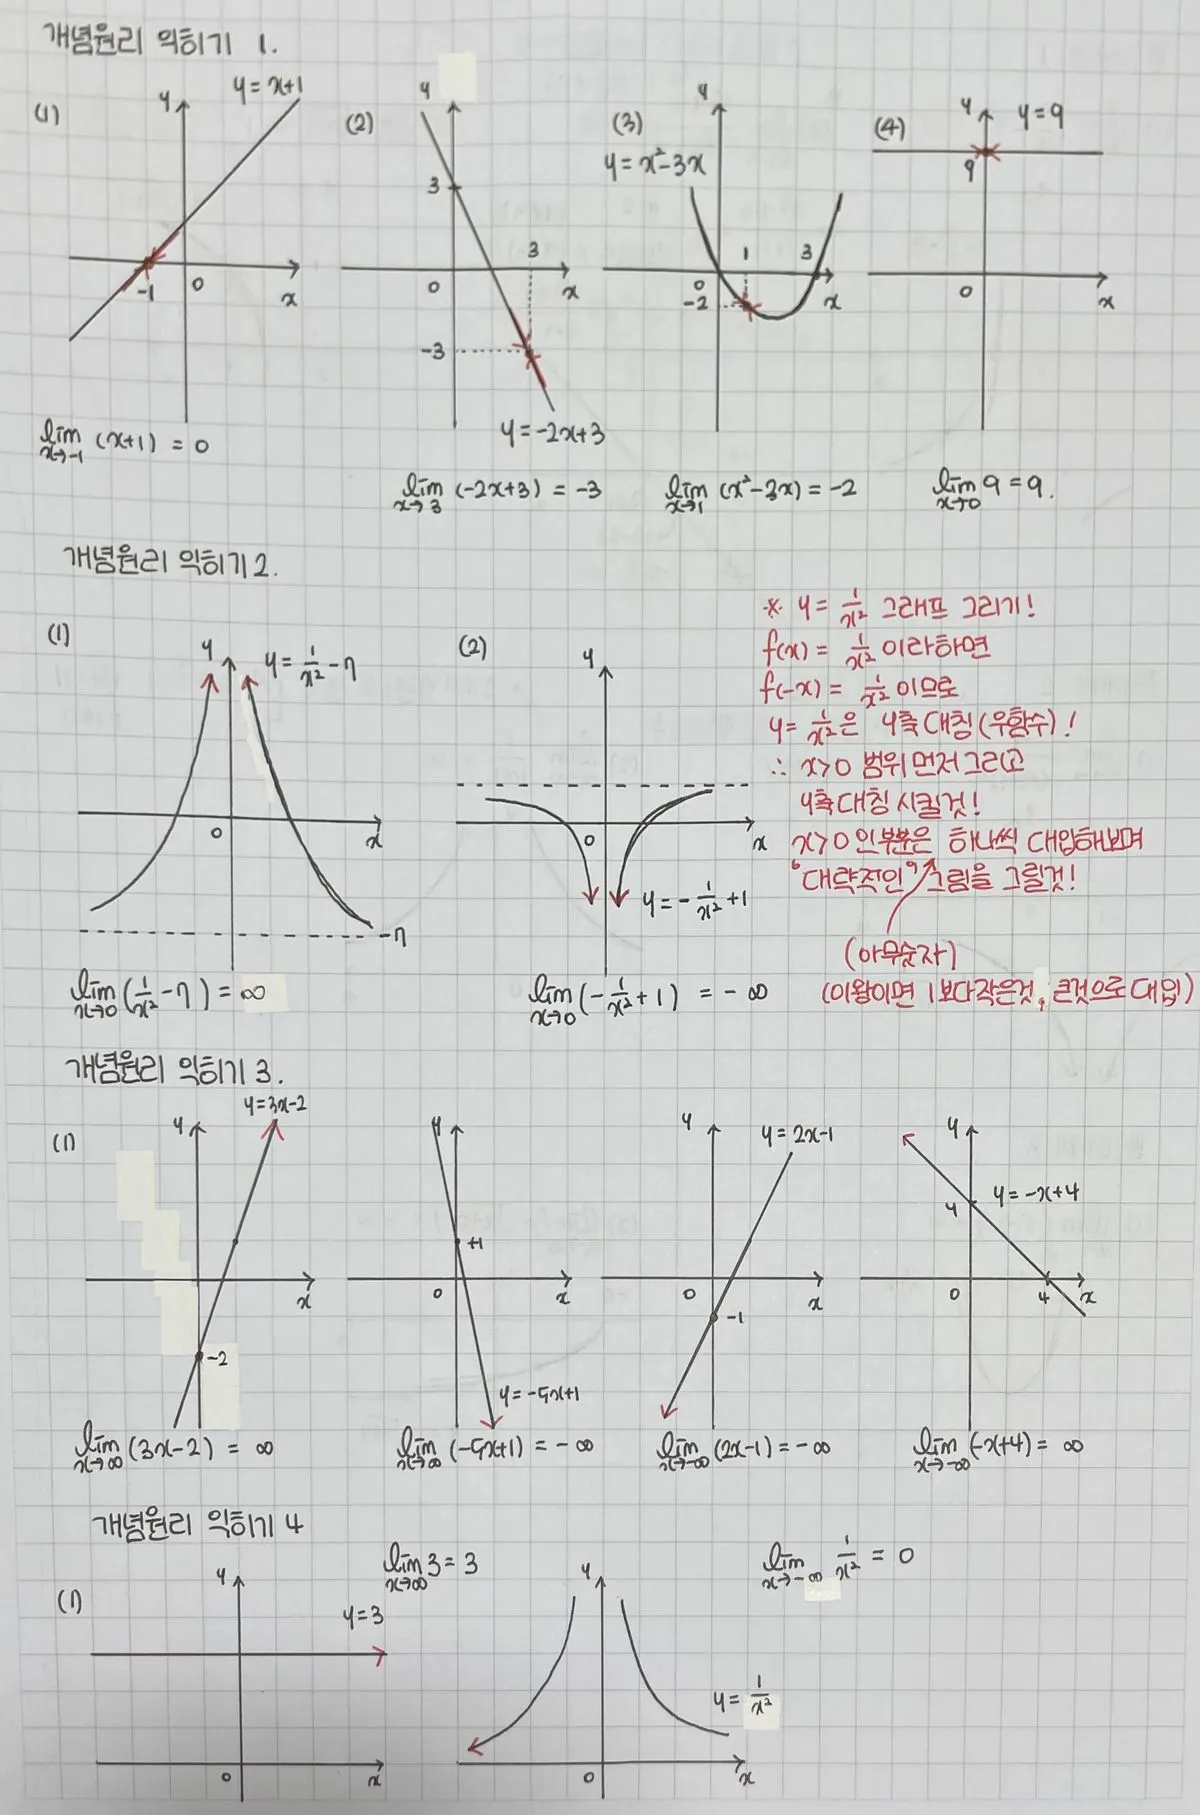 개념원리 익히기 1.
(1) y = x+1
y
-1 0 x
lim x→-1 (x+1) = 0
(2) y
3
3
0 x
-3
y = -2x+3
lim x→3 (-2x+3) = -3
(3) y
y = x²-3x
1 3
0 x
-2
lim x→1 (x²-3x) = -2
(4) y y = 9
9
0 x
lim x→0 9 = 9.
개념원리 익히기 2.
(1) y y = 1/x² - 7
0 x
-7
lim x→0 (1/x² - 7) = ∞
(2) y
0 x
y = -1/x² + 1
lim x→0 (-1/x² + 1) = -∞
※ y = 1/x² 그래프 그리기!
f(x) = 1/x² 이라하면
f(-x) = 1/x² 이므로
y = 1/x²은 y축 대칭 (우함수)!
∴ x>0 범위 먼저 그리고
y축 대칭 시킬것!
x>0 인 부분은 하나씩 대입해보며
"대략적인" 그림을 그릴것!
(아무숫자)
(이왕이면 1보다 작은것, 큰것으로 대입)
개념원리 익히기 3.
(1) y y=3x-2
x
-2
lim x→∞ (3x-2) = ∞
y
+1
0 x
y = -5x+1
lim x→∞ (-5x+1) = -∞
y y = 2x-1
0 x
-1
lim x→-∞ (2x-1) = -∞
y
y = -x+4
4
0 4 x
lim x→-∞ (-x+4) = ∞
개념원리 익히기 4
(1) y
lim x→∞ 3 = 3
y = 3
0 x
y
lim x→-∞ 1/x² = 0
y = 1/x²
0 x